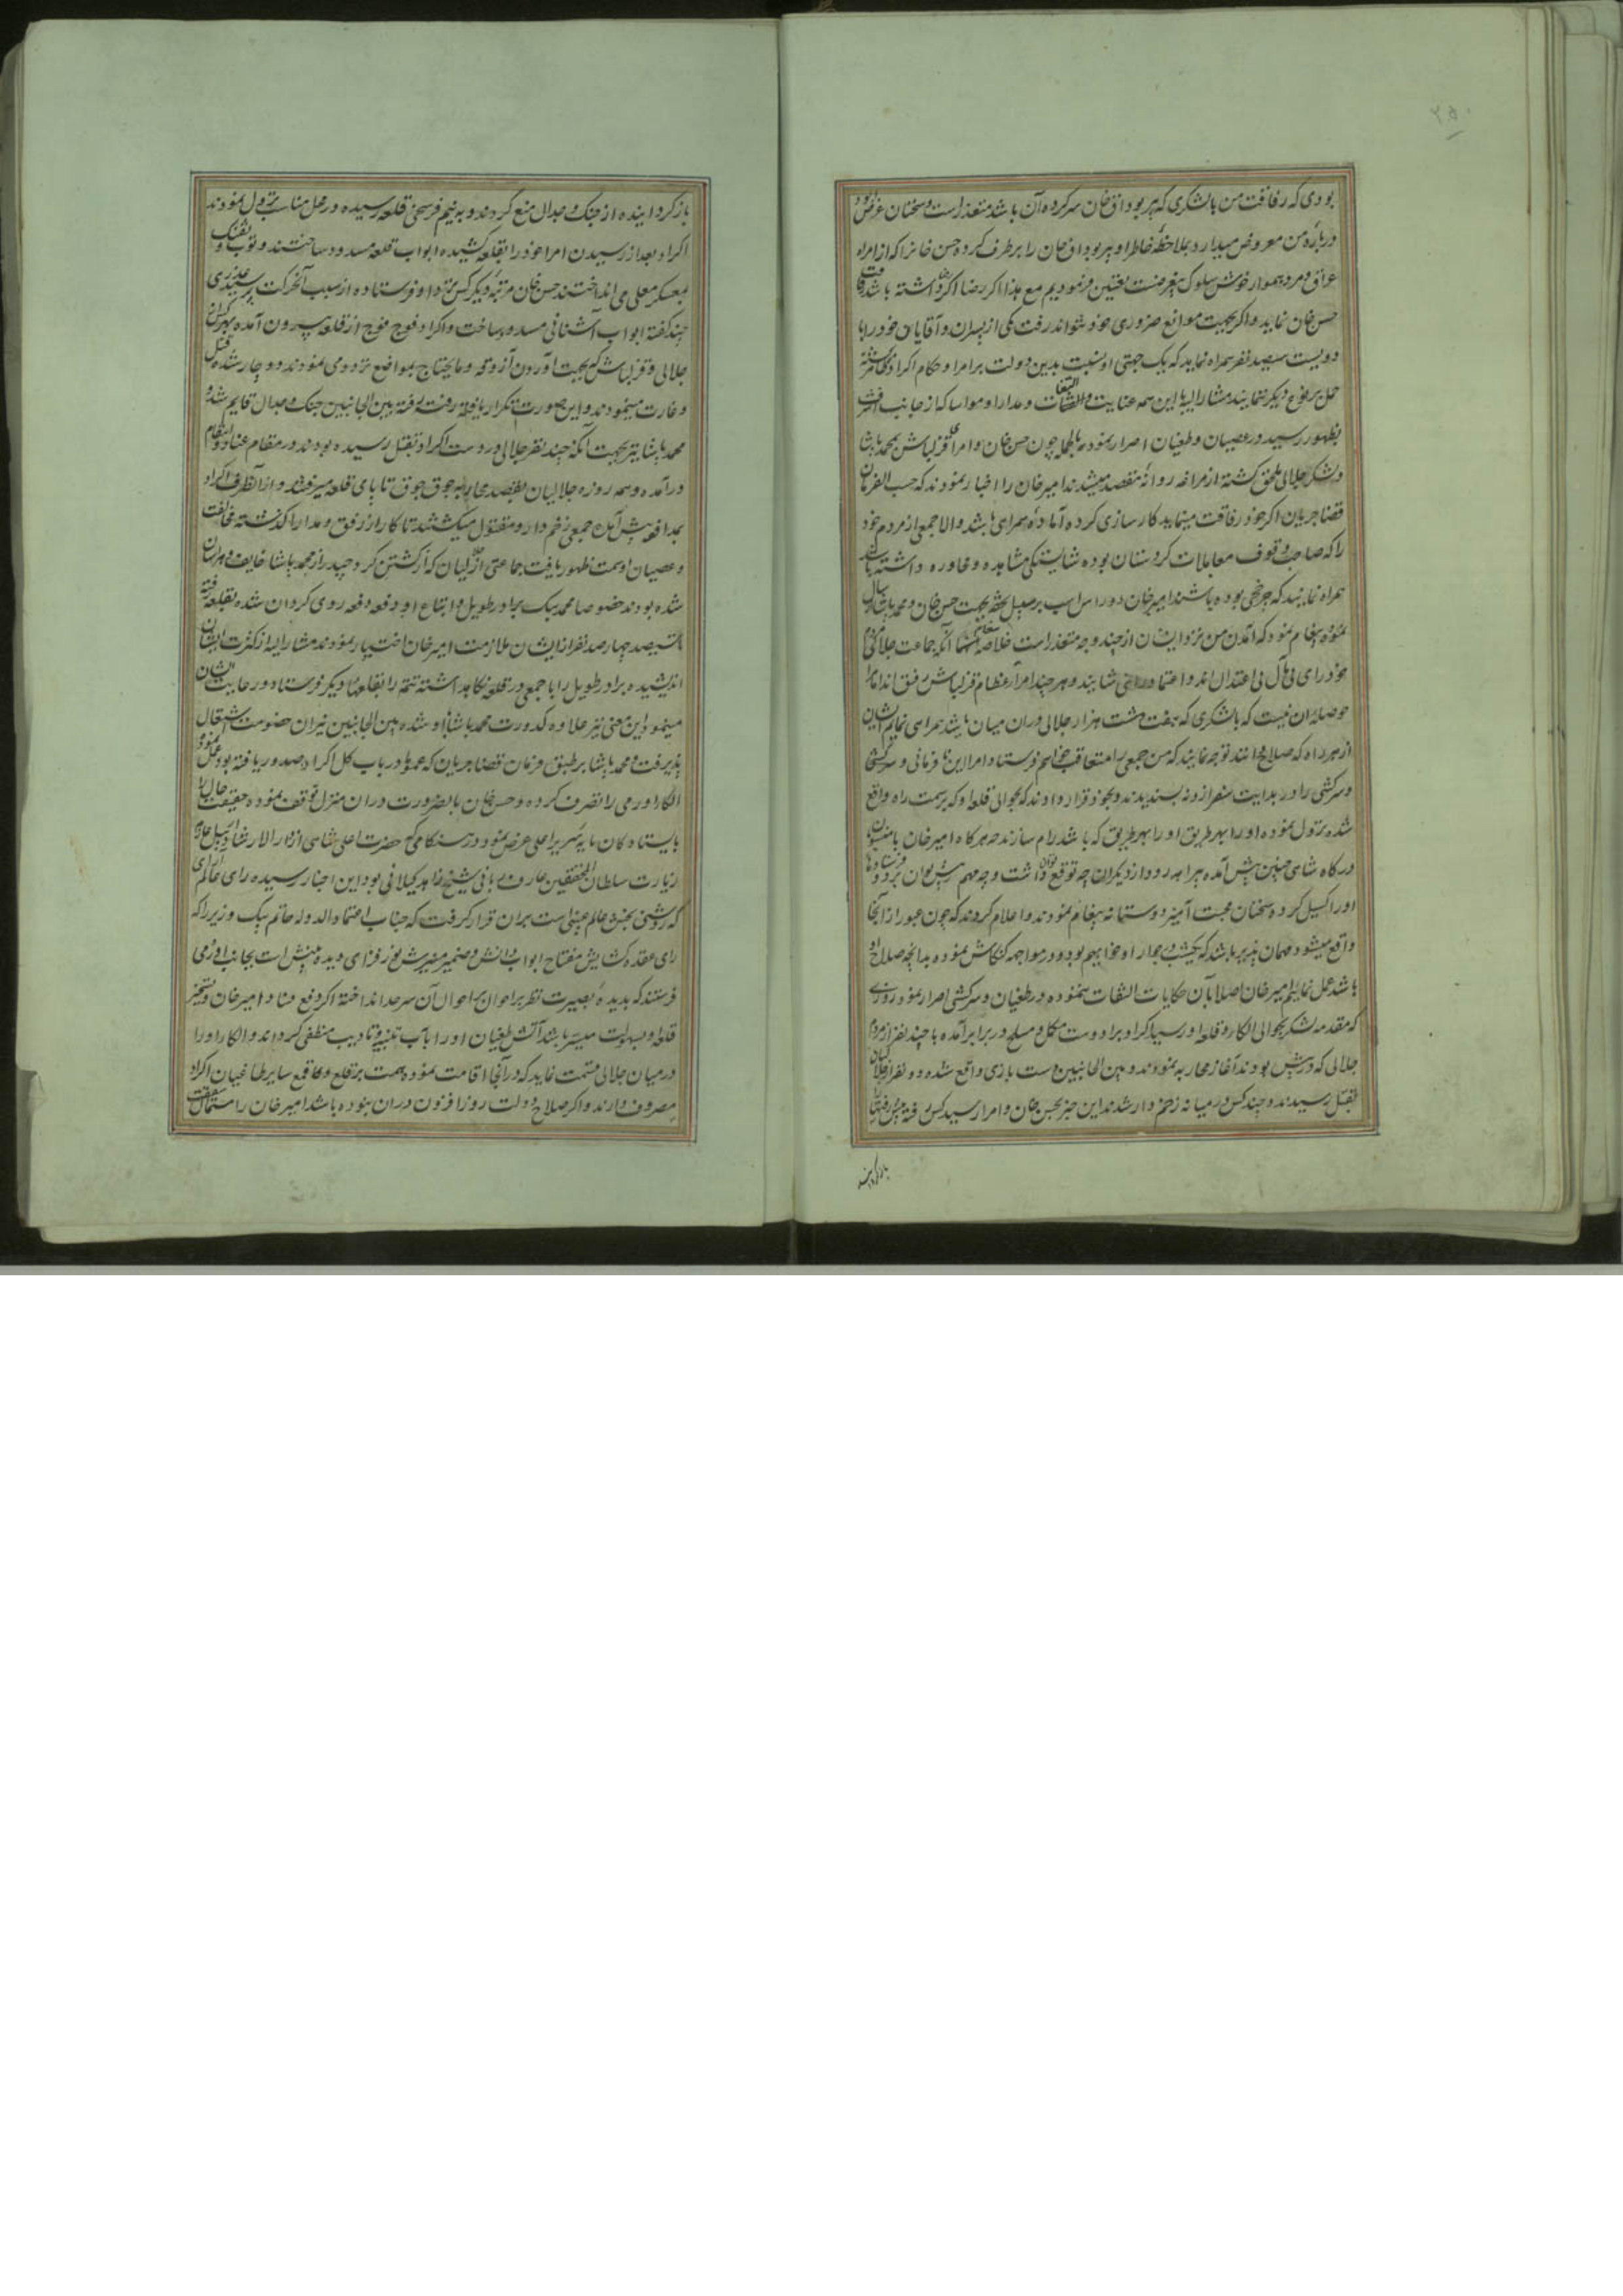 بودی که رفاقت من با لشکری که پیر بوداق خان سرکرده آن باشد متعذر است و سخنان غرض آلود
درباره من معروض میدارد بملاحظه خاطر او پیر بوداق خان را برطرف کرده حسن خانرا که از امراء
عراق و مرد هموار خوش سلوک بیغرضست تعیین فرمودیم مع هذا اگر رضا
حسن خان نماید و اگر بجهت موانع ضروری خود نتواند رفت یکی از پسران و آقایان خود را با
دویست سیصد نفر همراه نماید که یک جهتی او نسبت بدین دولت بر امرا و حکام اکراد
حمل بر نوع دیگر ننمایند مشارالیه با این همه عنایت و التفات و مدارا و مواسا که از جانب اشرف
بظهور رسید در عصیان و طغیان اصرار نموده بالجمله چون حسن خان و امرای قزلباش بمحمد پاشا
و لشکر جلالی ملحق گشته از مراغه روانه مقصد میشدند امیر خان را اخبار نمودند که حسب الفرمان
قضا جریان اگر خود رفاقت مینماید کارسازی کرده آماده همراهی باشد و الا جمعی از مردم خود
را که صاحب وقوف معاملات کردستان بوده شایستگی مشاهده و محاوره داشته باشند
همراه نمایند که چرخچی بوده باشند امیر خان دو راس اسب برسم تحفه بجهت حسن خان و محمد پاشا ارسال
نموده پیغام نمود که آمدن من نزد ایشان از چند وجه متعذر است خلاصه سخنها آنکه جماعت جلالی مردم
خود رای بی مآل بی اعتدال اند و اعتماد را نمی شایند و هر چند امراء عظام قزلباش رفیق اند اما مرا
حوصله آن نیست که با لشکری که هفت هشت هزار جلالی در آن میان باشد همراهی نمایم ایشان
از هر راه که صلاح دانند توجه نمایند که من جمعی را متعاقب خواهم فرستاد امرا این نافرمانی و سرکشی
و سرکشی را در بدایت سفر از و نه پسندیدند و بخود قرار دادند که بحوالی قلعه او که بر سمت راه واقع
شده نزول نموده او را بهر طریق او را بهر طریق که باشد رام سازند چه هرگاه امیر خان با منسوبان
درگاه شاهی چنین پیش آمده براه نه رود از دیگران چه توقع توان داشت و چه مهم پیش توان برد
او را کسیل کرده سخنان محبت آمیز دوستانه پیغام نمودند و اعلام کردند که چون عبور از آنجا
واقع میشود مهمان پذیر باشد که یکشب در جوار او خواهیم بود و در مواجهه کنکاش نموده بدانچه صلاح او
باشد عمل نماییم امیر خان اصلا بآن حکایات التفات ننموده در طغیان و سرکشی اصرار نمود روزی
که مقدمه لشکر بحوالی الکا و قلعه او رسید اکراد برادوست مکمل و مسلح در برابر آمده با چند نفر از مردم
جلالی که در پیش بودند آغاز محاربه نمودند و بین الجانبین دست بازی واقع شده دو نفر از جلالیان
بقتل رسیدند و چند کس در میانه زخم دار شدند این خبر بحسن خان و امرا رسید کس
بازگردانیده
بازگردانیده از جنک و جدال منع کردند و به نیم فرسخی قلعه رسیده در محل مناسب نزول نمودند
اکراد بعد از رسیدن امرا خود را بقلعه کشیده ابواب قلعه مسدود ساختند و توپ و تفنک
بمعسکر معلی می انداختند حسن خان مرتبه دیگر کس نزد او فرستاده از سبب آنحرکت پرسید عذری
چند گفته ابواب آشنائی مسدود ساخت و اکراد فوج فوج از قلعه بیرون آمده
جلالی و قزلباش که بجهت آوردن آزوقه و مایحتاج بمواضع تردد می نمودند دوچار شده قتل
و غارت مینمودند و این صورت تکرار یافته رفته رفته بین الجانبین جنک و جدال قایم شد و
محمد پاشا نیز بجهت آنکه چند نفر جلالی در دست اکراد بقتل رسیده بودند در مقام عناد و انتقام
درآمده و همه روزه جلالیان بقصد محاربه جوق جوق تا پای قلعه میرفتند و از آنطرف اکراد
بمدافعه پیش آمده جمعی زخم دار و مقتول میکشتند تا کار از رفق و مدارا گذشته مخالفت
و عصیان او سمت ظهور یافت جماعتی از جلالیان که از کشتن کرد حیدر از محمد پاشا خایف و هراسان
شده بودند خصوصا محمد بیک برادر طویل و اتباع او دفعه دفعه روی گردان شده بقلعه رفته
تا سیصد چهار صد نفر از ایشان ملازمت امیر خان اختیار نمودند مشارالیه از کثرت ایشان
اندیشیده برادر طویل را با جمعی در قلعه نگاهداشته تتمه را بقلعهای دیگر فرستاد و رعایت ایشان
مینمود این معنی نیز علاوه کدورت محمد پاشا با او شده بین الجانبین نیران خصومت اشتعال
پذیرفت و محمد پاشا بر طبق فرمان قضا جریان که عموما در باب کل اکراد صدور یافته بود عمل نموده
الکاء اورمی را تصرف کرده و حسن خان بالضرورت در آن منزل توقف نموده حقیقت حال را
بایستادگان پایه سریر اعلی عرض نمود در هنگامی که حضرت اعلی شاهی از دار الارشاد اردبیل عازم
زیارت سلطان المحققین عارف ربانی شیخ زاهد گیلانی بود این اخبار رسیده رای عالم آرای
که روشنی بخش عالم غیبی است بر آن قرار گرفت که جناب اعتماد الدوله حاتم بیک وزیر را که
رای عقده گشایش مفتاح ابواب دانش و ضمیر منیرش نور فزای دیده بینش است بجانب اورمی
فرستند که بدیده بصیرت نظر بر احوال آن سرحد انداخته اگر دفع فساد امیر خان و تسخیر
قلعه او بسهولت میسر باشد آتش طغیان او را بآب تنبیه و تادیب منطفی گرداند و الکاء او را
در میان جلالی قسمت نماید که در آنجا اقامت نموده همت بر قلع و قمع سایر طاغیان اکراد
مصروف دارند و اگر صلاح دولت روز افزون در آن نبوده باشد امیر خان را